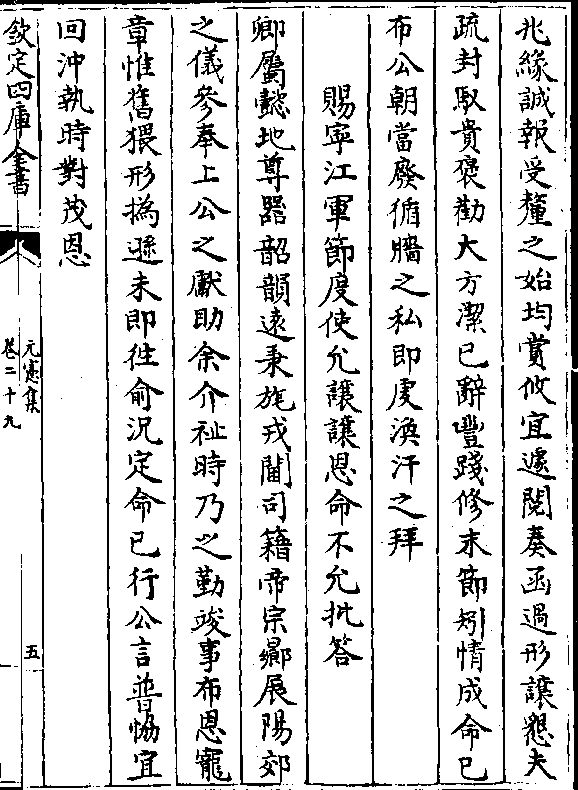 兆緣誠報受釐之始均賞攸宜遽閱奏函過形讓懇夫
疏封馭貴褒勸大方潔已辭豐踐修末節矧情成命已
布公朝當廢循牆之私即虔渙汗之拜
賜寧江軍節度使允讓讓恩命不允批答
卿屬懿地尊器韶韻遠秉旄戎閫司籍帝宗曏展陽郊
之儀參奉上公之獻助余介祉時乃之勤竣事布恩寵
章惟舊猥形撝遜未即徃俞況定命已行公言普協宜
回沖執時對茂恩
欽定四庫全書
元憲集
卷二十九
五